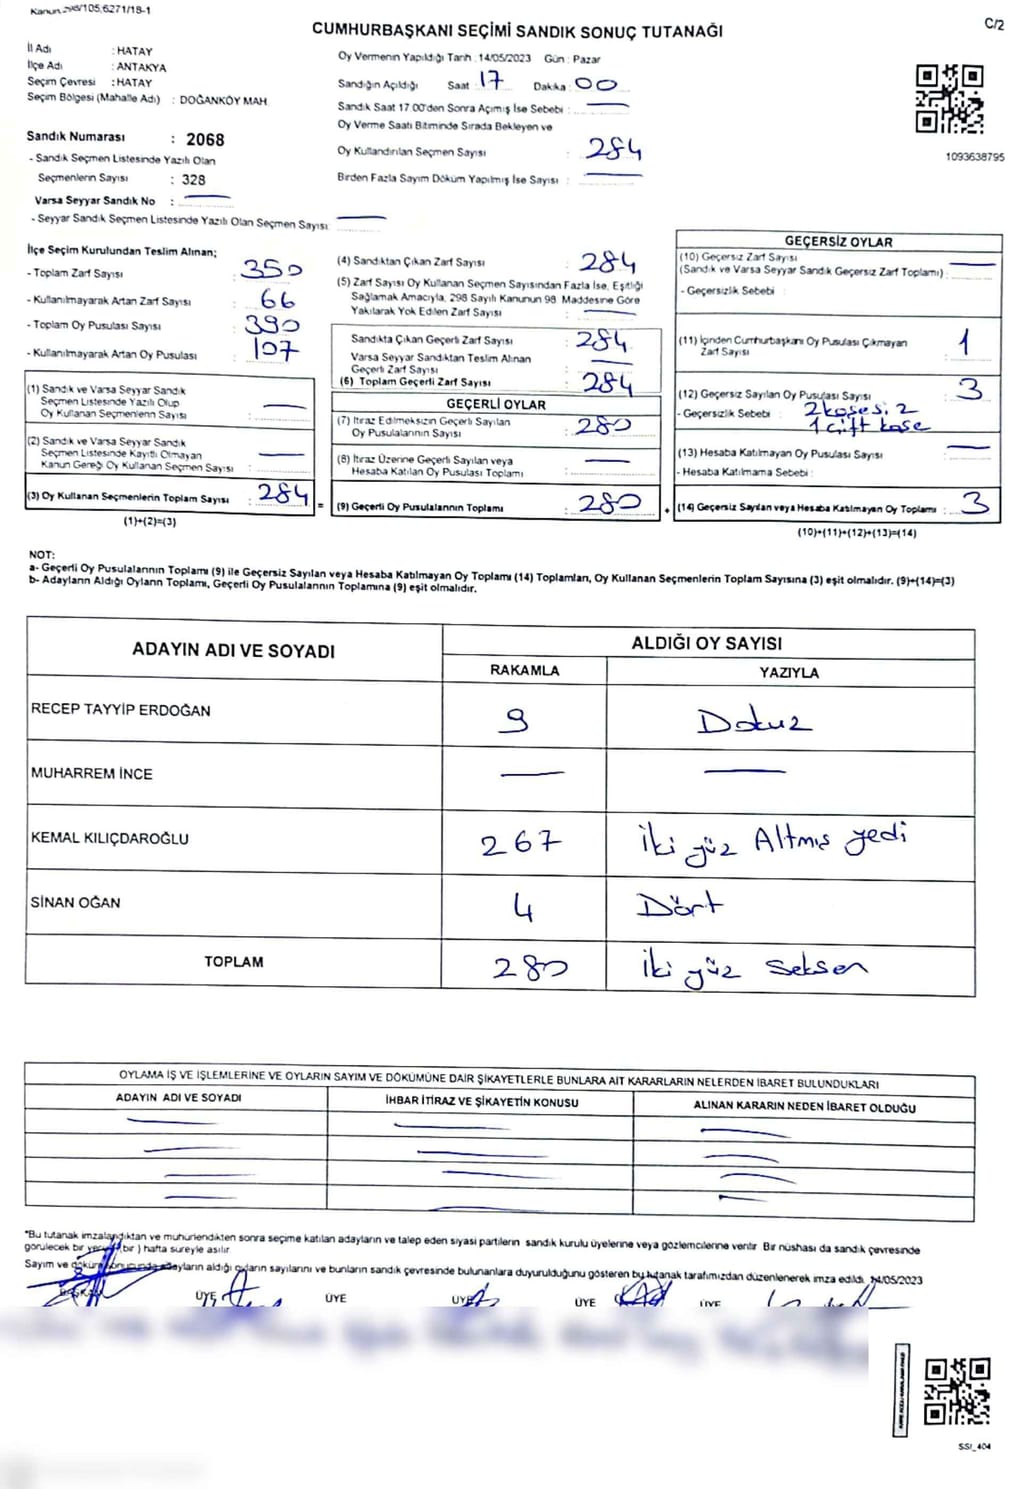 Kanun:298/105;6271/18-1
C/2
CUMHURBAŞKANI SEÇİMİ SANDIK SONUÇ TUTANAĞI
İl Adı : HATAY
İlçe Adı : ANTAKYA
Seçim Çevresi : HATAY
Seçim Bölgesi (Mahalle Adı) : DOĞANKÖY MAH
Sandık Numarası : 2068
- Sandık Seçmen Listesinde Yazılı Olan
Seçmenlerin Sayısı : 328
Varsa Seyyar Sandık No : —
- Seyyar Sandık Seçmen Listesinde Yazılı Olan Seçmen Sayısı: —
Oy Vermenin Yapıldığı Tarih : 14/05/2023 Gün : Pazar
Sandığın Açıldığı Saat : 17 Dakika : 00
Sandık Saat 17.00'den Sonra Açımış İse Sebebi : —
Oy Verme Saati Bitiminde Sırada Bekleyen ve
Oy Kullandırılan Seçmen Sayısı : 284
Birden Fazla Sayım Döküm Yapılmış İse Sayısı : —
1093638795
İlçe Seçim Kurulundan Teslim Alınan;
- Toplam Zarf Sayısı : 350
- Kullanılmayarak Artan Zarf Sayısı : 66
- Toplam Oy Pusulası Sayısı : 390
- Kullanılmayarak Artan Oy Pusulası : 107
(1) Sandık ve Varsa Seyyar Sandık
Seçmen Listesinde Yazılı Olup
Oy Kullanan Seçmenlerin Sayısı : —
(2) Sandık ve Varsa Seyyar Sandık
Seçmen Listesinde Kayıtlı Olmayan
Kanun Gereği Oy Kullanan Seçmen Sayısı : —
(3) Oy Kullanan Seçmenlerin Toplam Sayısı : 284 =
(1)+(2)=(3)
(4) Sandıktan Çıkan Zarf Sayısı : 284
(5) Zarf Sayısı Oy Kullanan Seçmen Sayısından Fazla İse, Eşitliği
Sağlamak Amacıyla, 298 Sayılı Kanunun 98. Maddesine Göre
Yakılarak Yok Edilen Zarf Sayısı : —
Sandıkta Çıkan Geçerli Zarf Sayısı : 284
Varsa Seyyar Sandıktan Teslim Alınan
Geçerli Zarf Sayısı : —
(6) Toplam Geçerli Zarf Sayısı : 284
GEÇERLİ OYLAR
(7) İtiraz Edilmeksizin Geçerli Sayılan
Oy Pusulalarının Sayısı : 280
(8) İtiraz Üzerine Geçerli Sayılan veya
Hesaba Katılan Oy Pusulası Toplamı : —
(9) Geçerli Oy Pusulalarının Toplamı : 280 +
GEÇERSİZ OYLAR
(10) Geçersiz Zarf Sayısı
(Sandık ve Varsa Seyyar Sandık Geçersiz Zarf Toplamı) : —
- Geçersizlik Sebebi :
(11) İçinden Cumhurbaşkanı Oy Pusulası Çıkmayan
Zarf Sayısı : 1
(12) Geçersiz Sayılan Oy Pusulası Sayısı : 3
- Geçersizlik Sebebi :
1 çift kaşe
(13) Hesaba Katılmayan Oy Pusulası Sayısı : —
- Hesaba Katılmama Sebebi :
(14) Geçersiz Sayılan veya Hesaba Katılmayan Oy Toplamı : 3
(10)+(11)+(12)+(13)=(14)
NOT:
a- Geçerli Oy Pusulalarının Toplamı (9) ile Geçersiz Sayılan veya Hesaba Katılmayan Oy Toplamı (14) Toplamları, Oy Kullanan Seçmenlerin Toplam Sayısına (3) eşit olmalıdır. (9)+(14)=(3)
b- Adayların Aldığı Oyların Toplamı, Geçerli Oy Pusulalarının Toplamına (9) eşit olmalıdır.
ADAYIN ADI VE SOYADI ALDIĞI OY SAYISI
RAKAMLA YAZIYLA
RECEP TAYYİP ERDOĞAN 9 Dokuz
MUHARREM İNCE — —
KEMAL KILIÇDAROĞLU 267 İki yüz Altmış yedi
SİNAN OĞAN 4 Dört
TOPLAM 280 İki yüz seksen
OYLAMA İŞ VE İŞLEMLERİNE VE OYLARIN SAYIM VE DÖKÜMÜNE DAİR ŞİKAYETLERLE BUNLARA AİT KARARLARIN NELERDEN İBARET BULUNDUKLARI
ADAYIN ADI VE SOYADI İHBAR İTİRAZ VE ŞİKAYETİN KONUSU ALINAN KARARIN NEDEN İBARET OLDUĞU
*Bu tutanak imzalandıktan ve mühürlendikten sonra seçime katılan adayların ve talep eden siyasi partilerin sandık kurulu üyelerine veya gözlemcilerine verilir. Bir nüshası da sandık çevresinde
görülecek bir yere (bir) hafta süreyle asılır.
Sayım ve döküm sonucunda adayların aldığı oyların sayılarını ve bunların sandık çevresinde bulunanlara duyurulduğunu gösteren bu tutanak tarafımızdan düzenlenerek imza edildi. 14/05/2023
BAŞKAN ÜYE ÜYE ÜYE ÜYE ÜYE
SSI_404